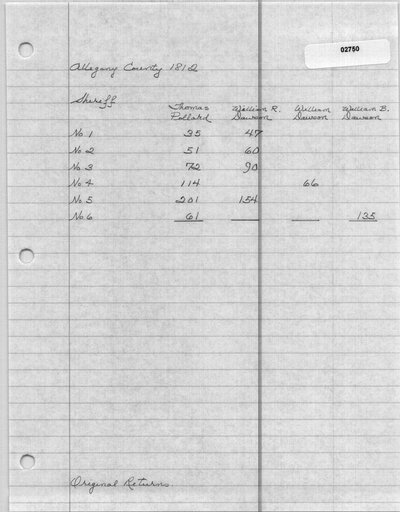 02750
Allegany County 1812
Sheriff
Thomas Pollard William R. Dawson William Dawson William B. Dawson
No. 1 35 47
No. 2 51 60
No. 3 72 90
No. 4 114 66
No. 5 201 154
No. 6 61 135
Original Returns